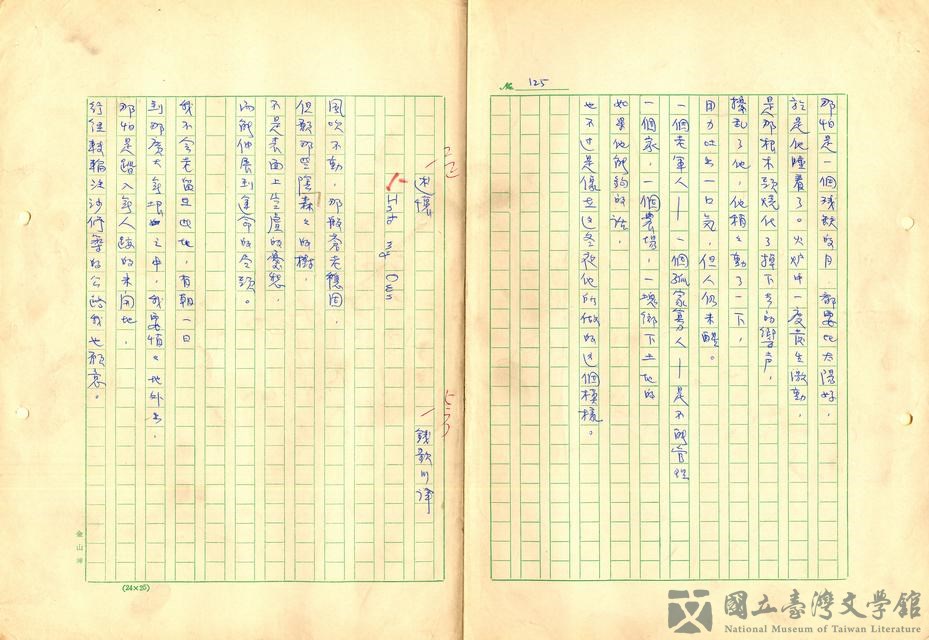 № 125
那怕是一個殘缺的月,都要比太陽好,
於是他睡着了。火炉中一度發生激動,
是那根木頭燒化了掉下去的響声,
擾乱了他,他稍々動了一下,
用力吐出一口気,但人仍未醒。
一個老軍人——一個孤家寡人——是不能管理
一個家,一個農場,一塊鄉下土地的
如果他能夠的話,
也不过是像在这冬夜他所做的这個模樣。
錢歌川譯
述懷
風吹不動,那般蒼老穩固,
但願那些陰森々的樹,
不是表面上空虛的憂愁,
而能伸展到運命的尽頭。
我不会老留在此地,有朝一日
到那廣大無垠之中,我要悄々地外出,
那怕是踏入無人蹤的未開地,
轂輪沙修築的公路我也願意。
(24×25)
國立臺灣文學館
National Museum of Taiwan Literature